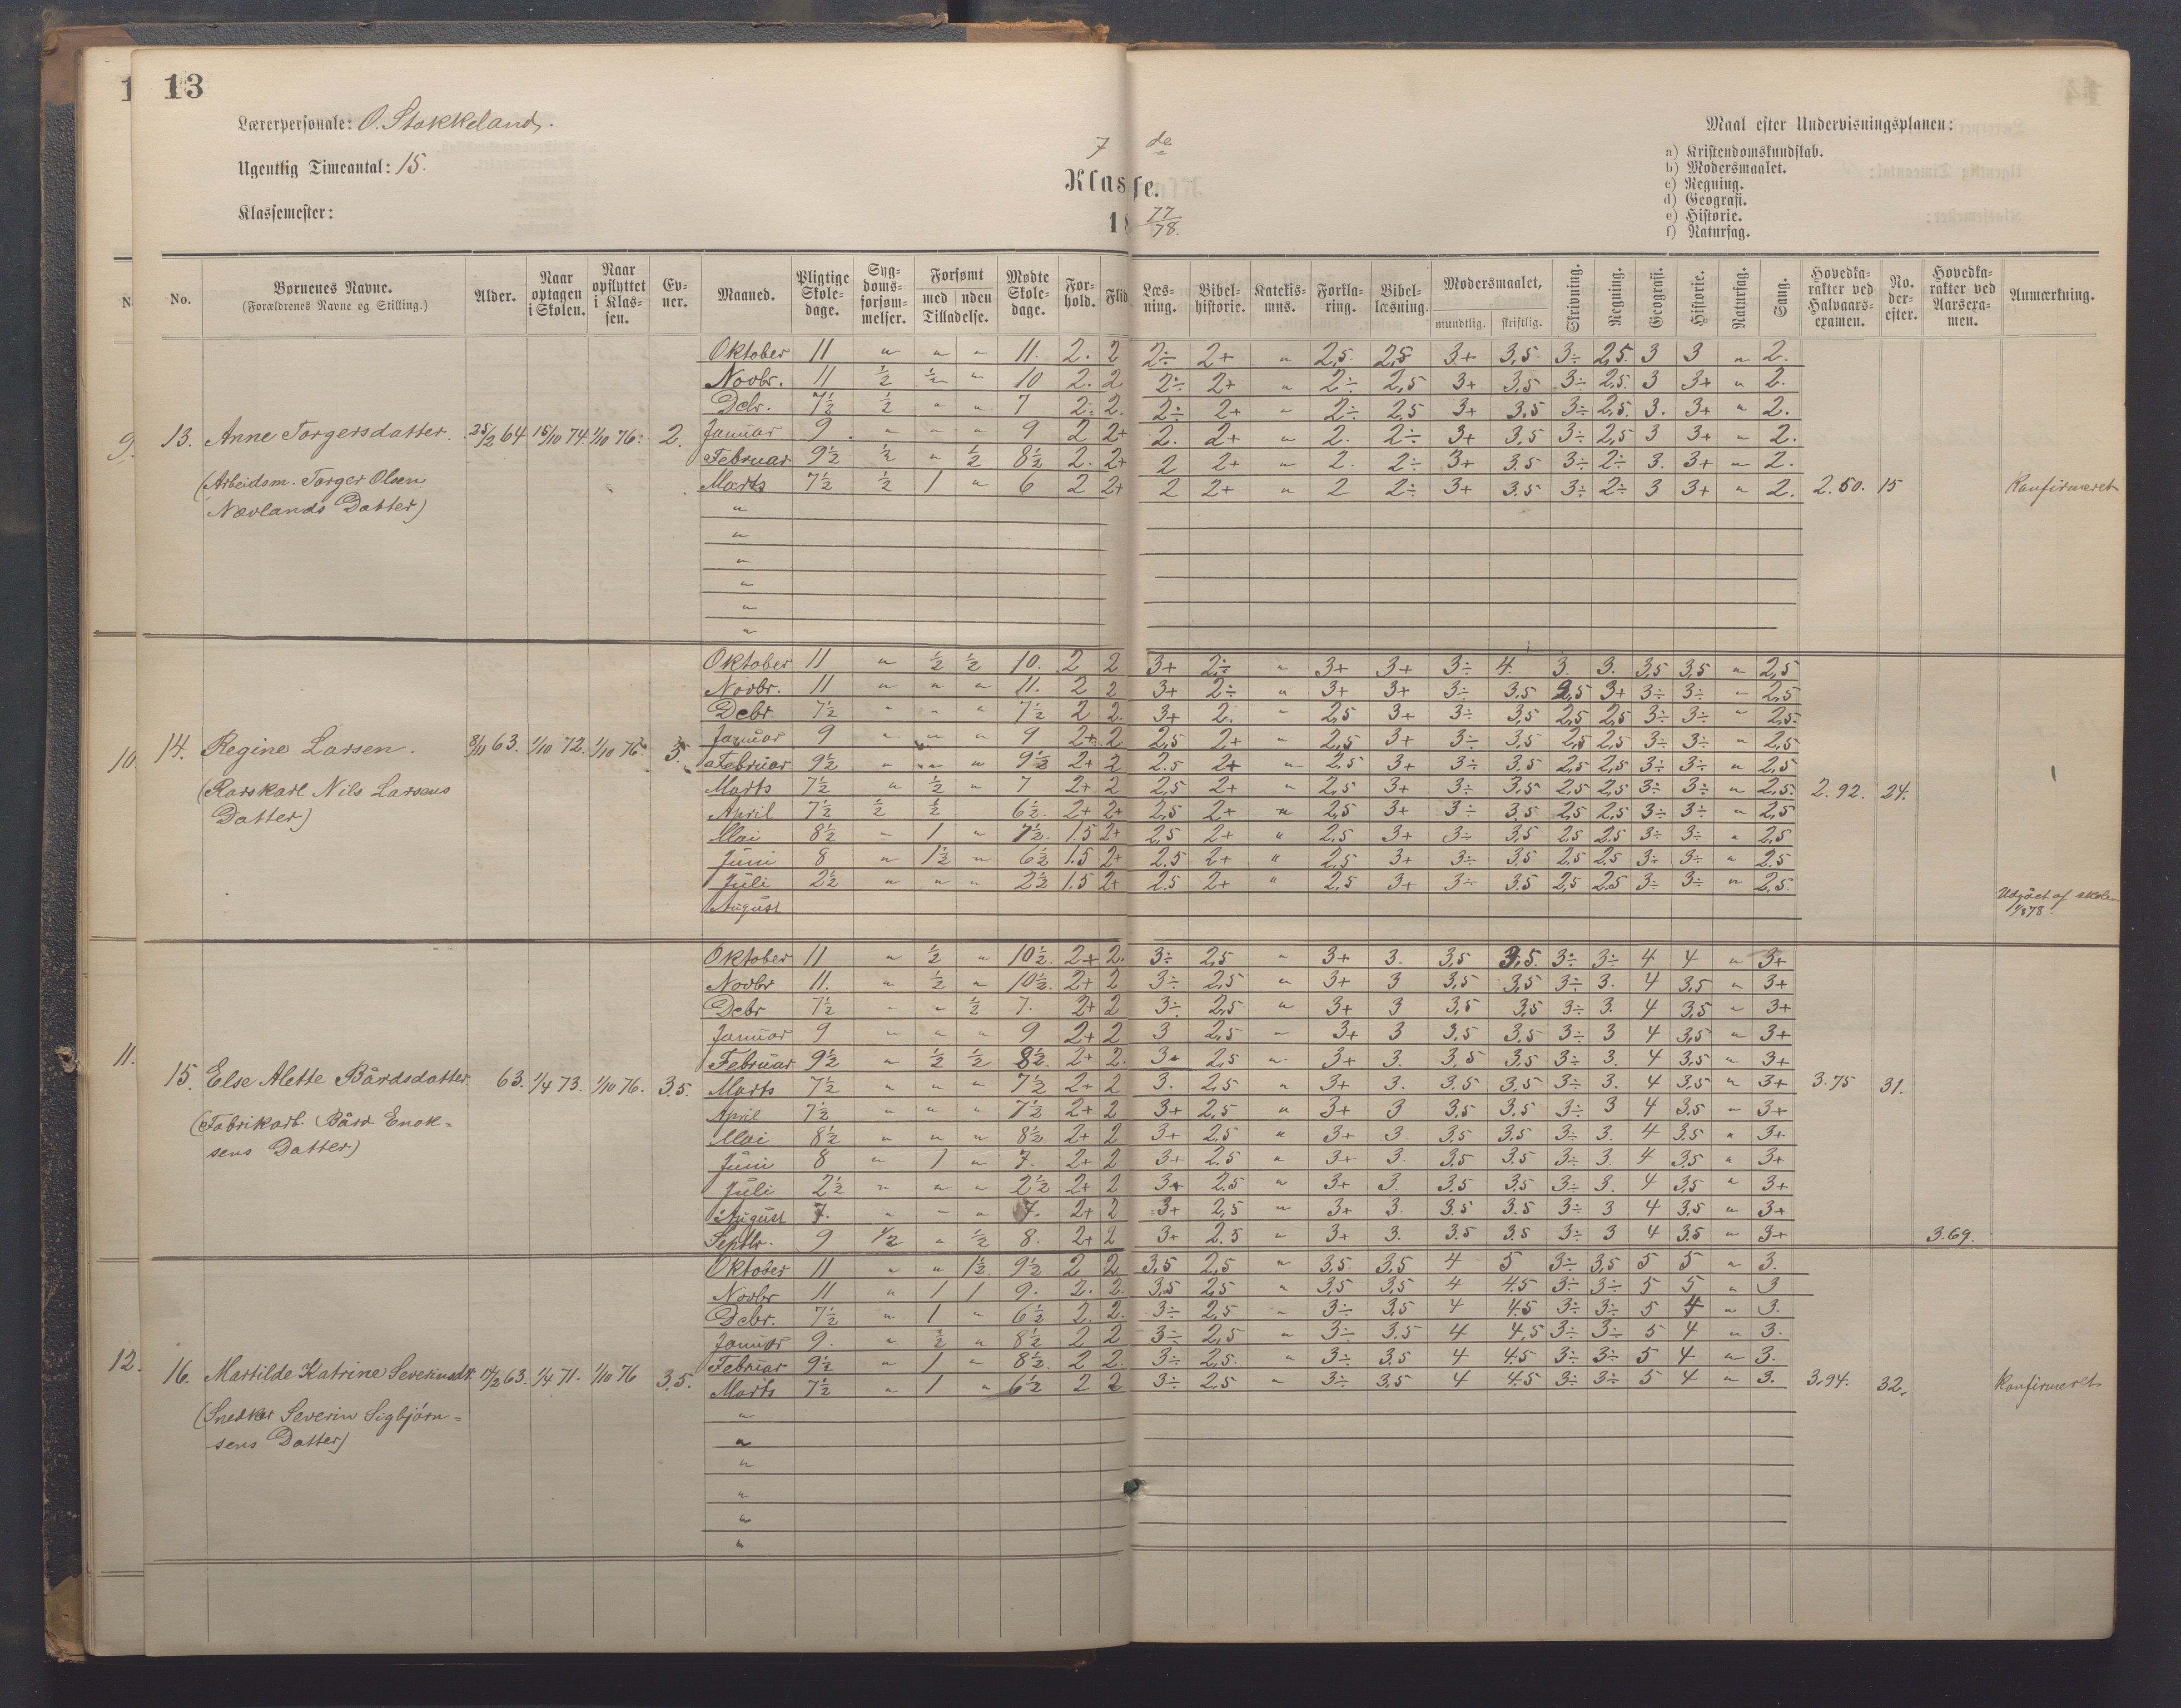 13
Lærerpersonale: O. Stokkeland.
Ugentlig Timeantal: 15.
Klassemester:
7 de
Klasse.
18 77/78.
Maal efter Undervisningsplanen:
a) Kristendomskundskab.
b) Modersmaalet.
c) Regning.
d) Geografi.
e) Historie.
f) Naturfag.
No. | Børnenes Navne. (Forældrenes Navne og Stilling.) | Alder. | Naar optagen i Skolen. | Naar opflyttet i Klassen. | Evner. | Maaned. | Pligtige Skoledage. | Sygdomsforsømmelser. | Forsømt med / uden Tilladelse. | Mødte Skoledage. | Forhold. | Flid | Læsning. | Bibelhistorie. | Katekismus. | Forklaring. | Bibellæsning. | Modersmaalet, mundtlig. / skriftlig. | Skrivning. | Regning. | Geografi. | Historie. | Naturfag. | Sang. | Hovedkarakter ved Halvaarsexamen. | No. derefter. | Hovedkarakter ved Aarsexamen. | Anmærkning.
Oktober 11 " " " 11. 2. 2 2÷ 2+ " 2,5. 2,5 3+ 3,5 3÷ 2,5. 3 3 " 2.
Novbr. 11 ½ ½ " 10 2. 2 2÷ 2+ " 2÷ 2,5 3+ 3,5 3÷ 2,5. 3 3+ " 2.
Debr. 7½ ½ " " 7 2. 2. 2÷ 2+ " 2÷ 2,5 3+ 3.5 3÷ 2,5. 3. 3+ " 2.
9. 13. Anne Torgersdatter. 25/2 64 15/10 74. 1/10 76. 2. Januar 9 " " " 9 2 2+ 2. 2+ " 2. 2÷ 3+ 3.5 3÷ 2,5 3 3+ " 2.
Februar 9½ ½ " ½ 8½ 2. 2+ 2 2+ " 2. 2÷ 3+ 3.5 3÷ 2÷ 3. 3+ " 2.
(Arbeidsm. Torger Olsen Marts 7½ ½ 1 " 6 2 2+ 2 2+ " 2 2÷ 3+ 3.5 3÷ 2÷ 3 3+ " 2. 2.50. 15 Konfirmeret
Nævlands Datter) "
"
"
"
"
"
Oktober 11 " ½ ½ 10. 2 2 3+ 2÷ " 3+ 3+ 3÷ 4. 3. 3. 3,5 3,5 " 2,5
Novbr. 11 " " " 11. 2 2 3+ 2÷ " 3+ 3+ 3÷ 3,5 2,5 3+ 3÷ 3÷ " 2,5
Debr. 7½ " " " 7½ 2 2. 3+ 2. " 2,5 3+ 3÷ 3,5 2,5 2,5 3÷ 3÷ " 2,5.
10. 14. Regine Larsen. 8/11 63. 1/10 72. 1/10 76. 3. Januar 9 " " " 9 2+ 2 2,5 2+ " 2,5 3+ 3÷ 3,5 2,5 2,5 3÷ 3÷ " 2,5
Februar 9½ " " " 9½ 2+ 2 2.5 2+ " 2.5 3+ 3÷ 3.5 2,5 2,5 3÷ 3÷ " 2,5
(Karskarl Nils Larsens Marts 7½ " ½ " 7 2+ 2 2,5 2+ " 2,5 3+ 3÷ 3,5 2,5 2,5 3÷ 3÷ " 2,5. 2.92. 24.
Datter) April 7½ ½ ½ 6½. 2+ 2+ 2,5 2+ " 2,5 3+ 3÷ 3,5 2,5 2,5 3÷ 3÷ " 2,5
Mai 8½ " 1 " 7½. 1.5 2+ 2,5 2+ " 2,5 3+ 3÷ 3,5 2,5 2,5 3÷ 3÷ " 2,5
Juni 8 " 1½ " 6½ 1.5 2+ 2.5 2+ " 2,5 3+ 3÷ 3.5 2.5 2.5 3÷ 3÷ " 2.5
Juli 2½ " " " 2½ 1.5 2+ 2.5 2+ " 2,5 3+ 3÷ 3.5 2,5 2.5 3÷ 3÷ " 2,5.
August Udgået af skolen
1/8 78.
Oktober 11 " ½ " 10½. 2+ 2. 3÷ 2,5 " 3+ 3. 3,5 3,5. 3÷ 3÷ 4 4 " 3+
Novbr 11. " ½ " 10½. 2+ 2 3÷ 2,5 " 3+ 3 3,5 3,5 3÷ 3. 4 3,5 " 3+
Debr 7½ " " ½ 7. 2+ 2 3÷ 2,5 " 3+ 3 3,5 3,5 3÷ 3. 4 3,5 " 3+
Januar 9 " " " 9 2+ 2 3 2,5 " 3+ 3 3,5 3,5 3÷ 3 4 3,5 " 3+
11. Februar 9½ " ½ ½ 8½. 2+ 2. 3+ 2,5 " 3+ 3. 3,5 3,5 3÷ 3. 4 3,5 " 3+
15. Else Alette Bårdsdatter 63. 1/4 73. 1/10 76. 3.5. Marts 7½ " " " 7½ 2+ 2 3. 2,5 " 3+ 3. 3.5 3,5 3÷ 3. 4 3,5 " 3+ 3.75 31.
(Fabrikarb. Bård Enok= April 7½ " " " 7½ 2+ 2 3+ 2,5 " 3+ 3 3,5 3.5 3÷ 3 4 3,5 " 3+
sens Datter) Mai 8½ " " " 8½ 2+ 2 3+ 2,5 " 3+ 3. 3,5 3,5 3÷ 3. 4 3,5 " 3+
Juni 8 " 1 " 7. 2+ 2 3+ 2.5 " 3+ 3. 3,5 3.5 3÷ 3. 4 3,5 " 3+
Juli 2½ " " " 2½ 2+ 2 3+ 2.5 " 3+ 3 3.5 3,5 3÷ 3. 4 3,5 " 3+
August 7. " " " 7. 2+ 2 3+ 2,5 " 3+ 3. 3.5 3.5 3÷ 3 4 3,5 " 3+
Septbr. 9 1/2 " ½ 8. 2+ 2 3+ 2.5 " 3+ 3. 3.5 3.5 3÷ 3 4 3.5 " 3+ 3.69.
Oktober 11 " " 1½. 9½ 2 2 3,5 2,5 " 3,5. 3,5 4 5 3÷ 3,5 5 5 " 3.
Novbr 11 " 1 1 9. 2. 2. 3,5 2,5 " 3,5 3,5 4 4.5 3÷ 3÷ 5 5 " 3
Debr. 7½ " 1 " 6½ 2. 2. 3÷ 2,5 " 3÷ 3,5 4 4.5 3÷ 3÷ 5 4 " 3.
Januar 9. " ½ " 8½ 2 2 3÷ 2,5 " 3÷ 3.5 4 4,5 3÷ 3÷ 5 4 " 3.
12. Februar 9½ " 1 " 8½. 2 2. 3÷ 2,5. " 3÷ 3.5 4 4.5 3÷ 3÷ 5 4 " 3.
16. Martilde Katrine Severinsdt. 17/2 63. 1/4 71. 1/10 76 3.5. Marts 7½ " 1 " 6½ 2 2 3÷ 2,5 " 3÷ 3,5 4 4.5 3÷ 3÷ 5 4 " 3. 3.94. 32. Konfirmeret
(Snedker Severin Sigbjörn= "
sens Datter) "
"
"
"
"